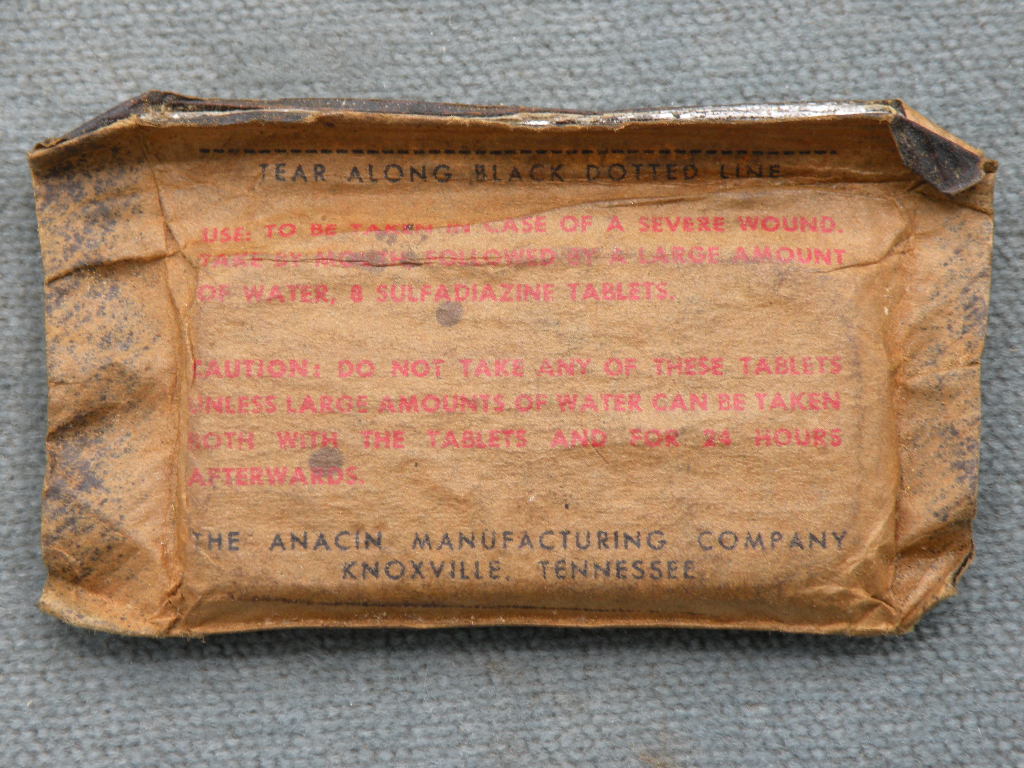 TEAR ALONG BLACK DOTTED LINE
USE: TO BE TAKEN IN CASE OF A SEVERE WOUND.
TAKE BY MOUTH, FOLLOWED BY A LARGE AMOUNT
OF WATER, 8 SULFADIAZINE TABLETS.
CAUTION: DO NOT TAKE ANY OF THESE TABLETS
UNLESS LARGE AMOUNTS OF WATER CAN BE TAKEN
BOTH WITH THE TABLETS AND FOR 24 HOURS
AFTERWARDS.
THE ANACIN MANUFACTURING COMPANY
KNOXVILLE, TENNESSEE